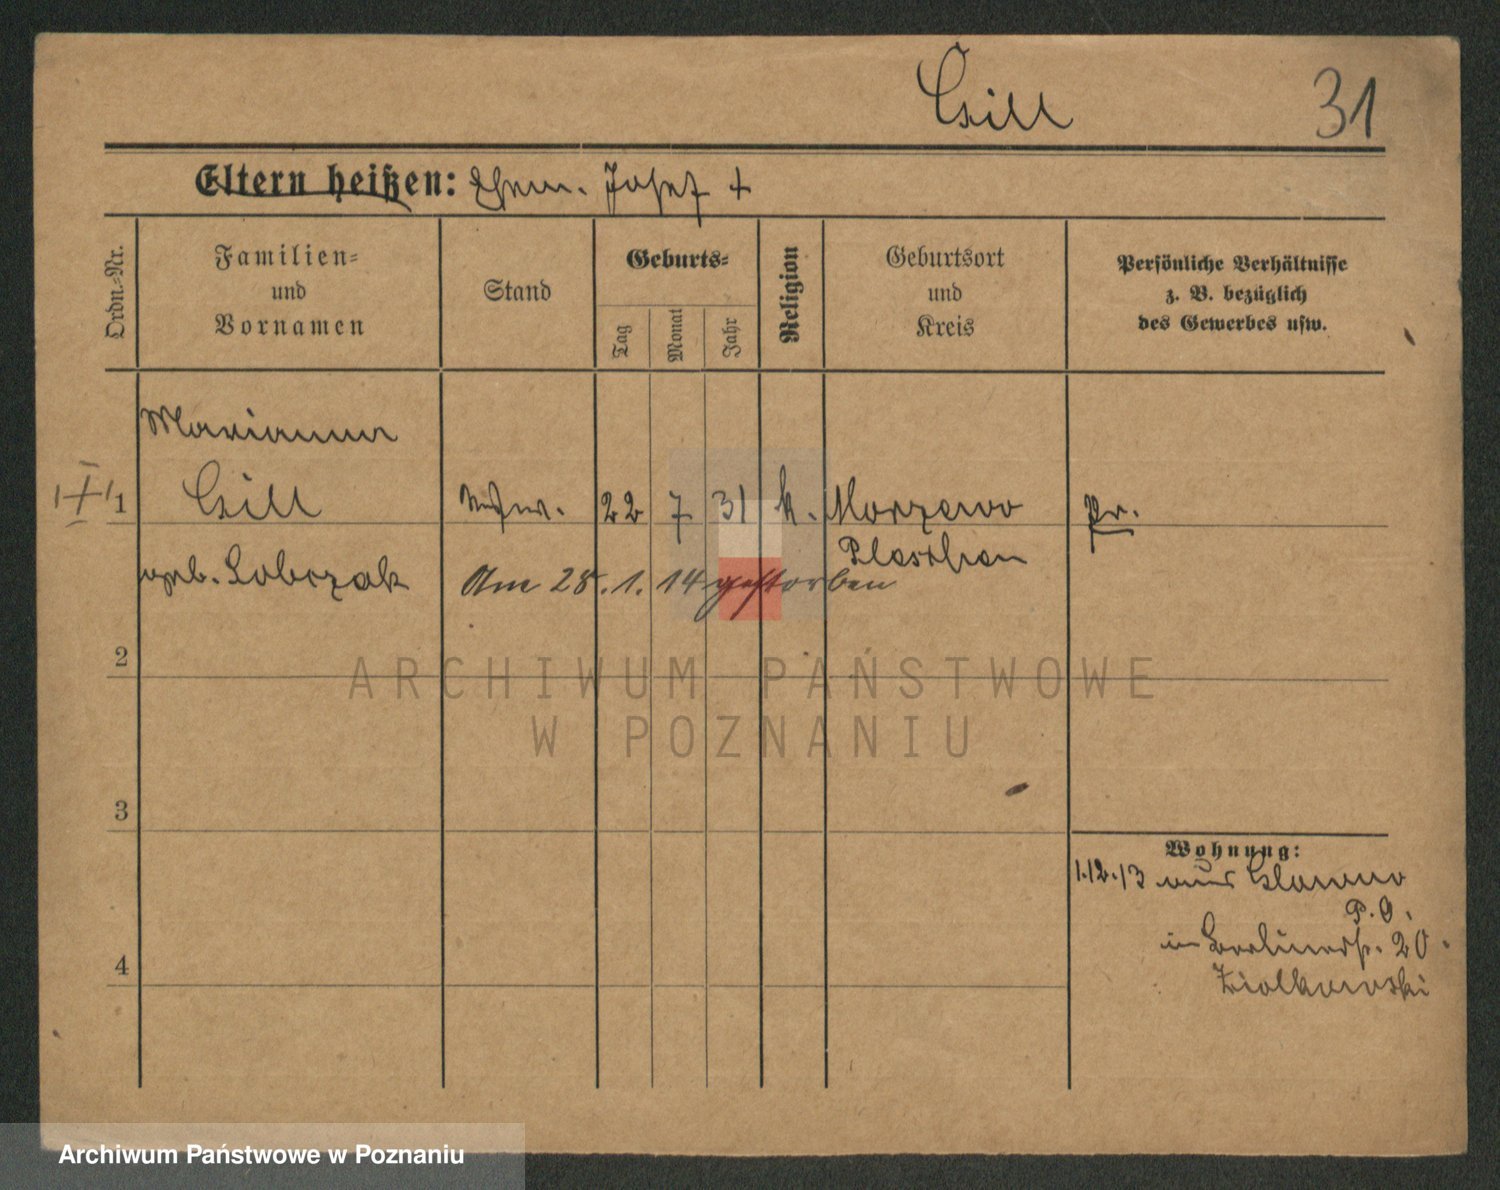 Gill 31
Eltern heißen: Ehem. Josef +
Ordn.-Nr.
Familien-
und
Vornamen
Stand
Geburts-
Tag
Monat
Jahr
Religion
Geburtsort
und
Kreis
Persönliche Verhältnisse
z. B. bezüglich
des Gewerbes usw.
Marianna
1 Gill Wwe. 22 7 31 k. Morzewo Pr.
Pleschen
geb. Sobczak Am 28.1.14 gestorben
2
ARCHIWUM PAŃSTWOWE
W POZNANIU
3
Wohnung:
1.12.13 aus Glowno
P.O.
in Berlinerstr. 20
Ziolkowski
4
Archiwum Państwowe w Poznaniu